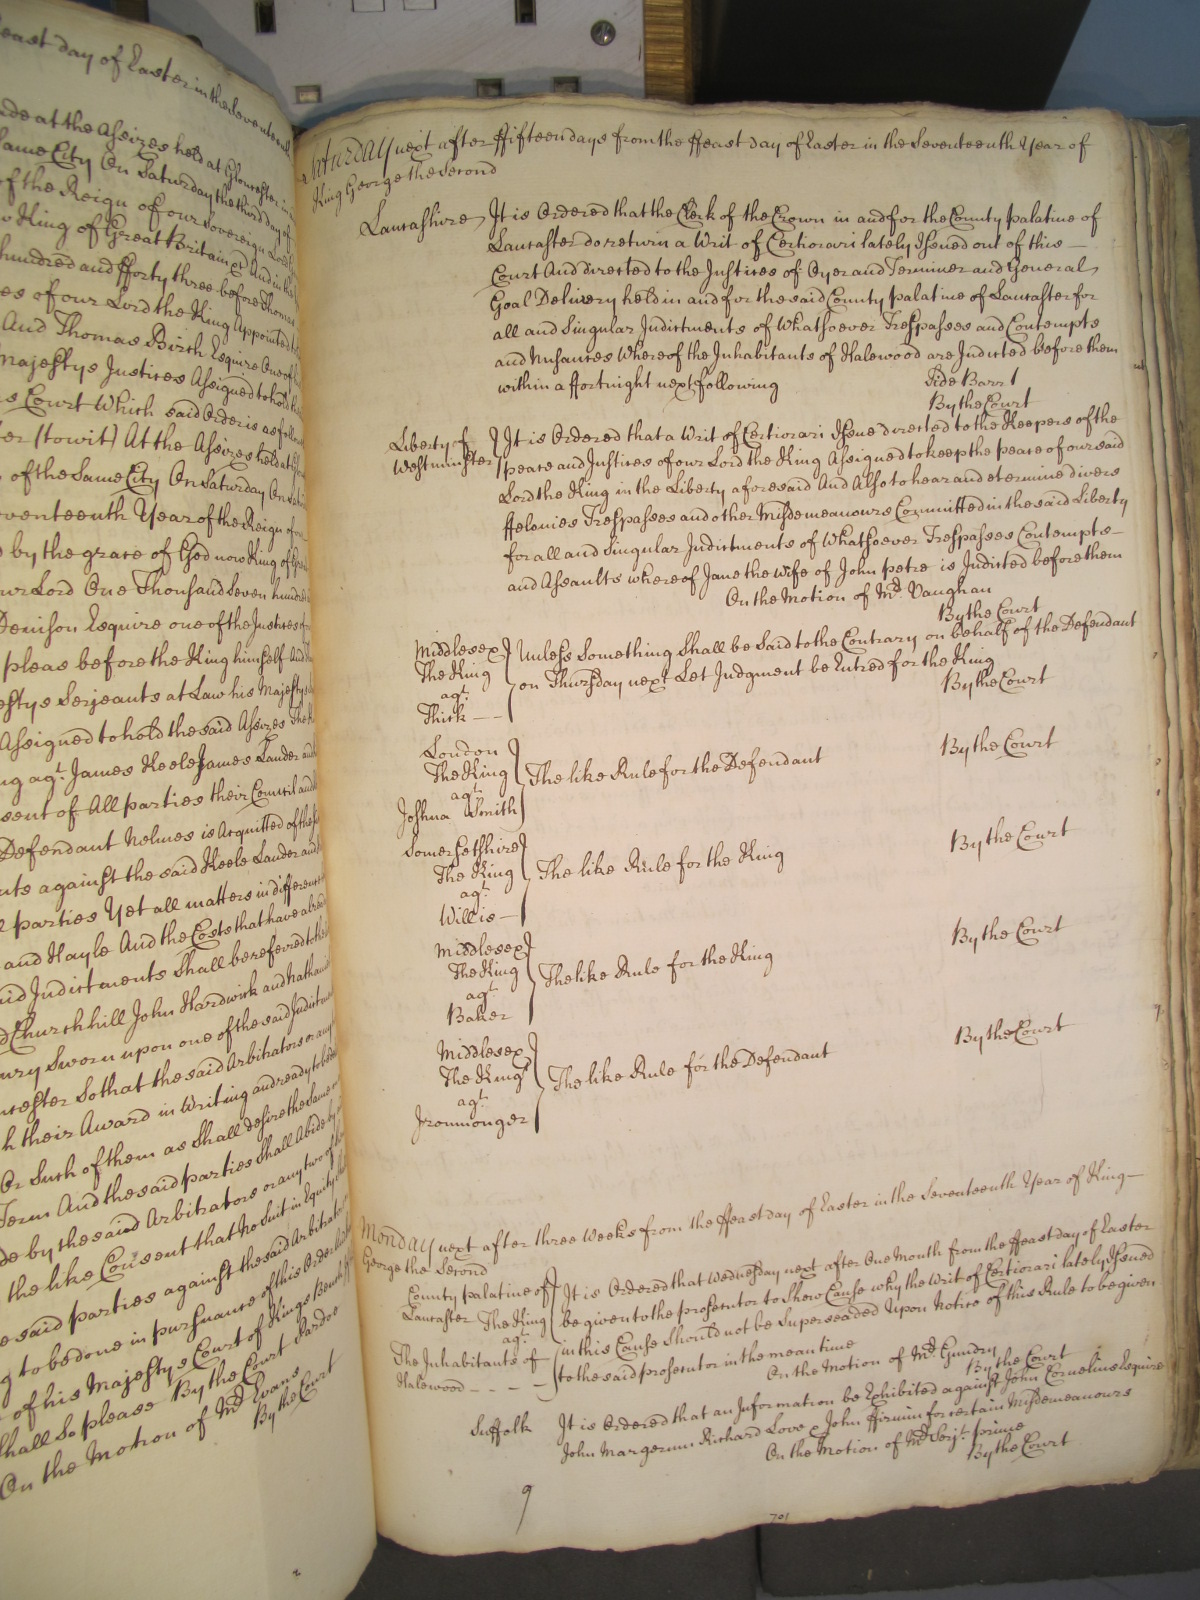 east day of Easter in the Seventeenth
ade at the Assizes held at Gloucester in
Same City On Saturday the third day of
of the Reign of our Sovereign Lord
w King of Great Britain &c And in the
hundred and fforty three before Thomas
es of our Lord the King Appointed
And Thomas Birch Esquire One of
Majestys Justices Assigned to hold the
is Court Which said Order is as follows
ter (to wit) At the Assizes held at
of the Same City On Saturday
eventeenth Year of the Reign of
by the grace of God now King of
our Lord One Thousand Seven hundred
Denison Esquire one of the Justices
pleas before the King himself And
estys Serjeants at Law his Majestys
Assigned to hold the said Assizes The
ng agt. James Keele James Lander and
sent of All parties their Council and
Defendant Nelmes is Acquitted of the
nts against the said Keele Lander and
l parties Yet all matters in difference
and Hayle And the Costs that have already
aid Indictments Shall be referred to the
d Churchhill John Hardwick and Nathaniel
ury Sworn upon one of the said Indictments
ucester So that the said Arbitrators or any
h their Award in Writing and ready to be
Or Such of them as Shall desire the Same
Term And the said parties Shall Abide by
de by the said Arbitrators or any two of
the like Consent that no Suit in Equity
e said parties against the said Arbitrators
g to be done in pursuance of this Order
of his Majestys Court of Kings Bench
shall So please By the Court Pardoe
On the Motion of Mr. Evans
By the Court
Saturday next after ffifteen days from the ffeast day of Easter in the Seventeenth Year of
King George the Second
Lancashire It is Ordered that the Clerk of the Crown in and for the County palatine of
Lancaster do return a Writ of Certiorari lately Issued out of this
Court And directed to the Justices of Oyer and Terminer and General
Goal Delivery held in and for the said County palatine of Lancaster for
all and Singular Indictments of Whatsoever Trespasses and Contempts
and Nusances Whereof the Inhabitants of Halewood are Indicted before them
within a ffortnight next following
Side Barr
By the Court
Liberty of Westminster It is Ordered that a Writ of Certiorari Issue directed to the Keepers of the
peace and Justices of our Lord the King Assigned to keep the peace of our said
Lord the King in the Liberty aforesaid And Also to hear and determine divers
ffelonies Trespasses and other Misdemeanours Committed in the said Liberty
for all and Singular Indictments of Whatsoever Trespasses Contempts
and Assaults whereof Jane the Wife of John Petre is Indicted before them
On the Motion of Mr. Vaughan
By the Court
Middlesex
The King
agt.
Thick
Unless Something Shall be Said to the Contrary on behalf of the Defendant
on Thursday next Let Judgment be Entred for the King
By the Court
London
The King
agt.
Joshua Smith
The like Rule for the Defendant
By the Court
Somersetshire
The King
agt.
Willis
The like Rule for the King
By the Court
Middlesex
The King
agt.
Baker
The like Rule for the King
By the Court
Middlesex
The King
agt.
Ironmonger
The like Rule for the Defendant
By the Court
Monday next after three Weeks from the ffeast day of Easter in the Seventeenth Year of King
George the Second
County palatine of
Lancaster The King
agt.
The Inhabitants of
Halewood
It is Ordered that Wednesday next after One Month from the ffeast day of Easter
be given to the prosecutor to Shew Cause why the Writ of Certiorari lately Issued
in this Cause Should not be Superseaded Upon Notice of this Rule to be given
to the said prosecutor in the mean time
On the Motion of Mr. Gundry
By the Court
Suffolk It is Ordered that an Information be Exhibited against John Cornelius Esquire
John Margerum Richard Love & John ffirmin for certain Misdemeanours
On the Motion of Mr. Serjt. Prime
By the Court
9
701